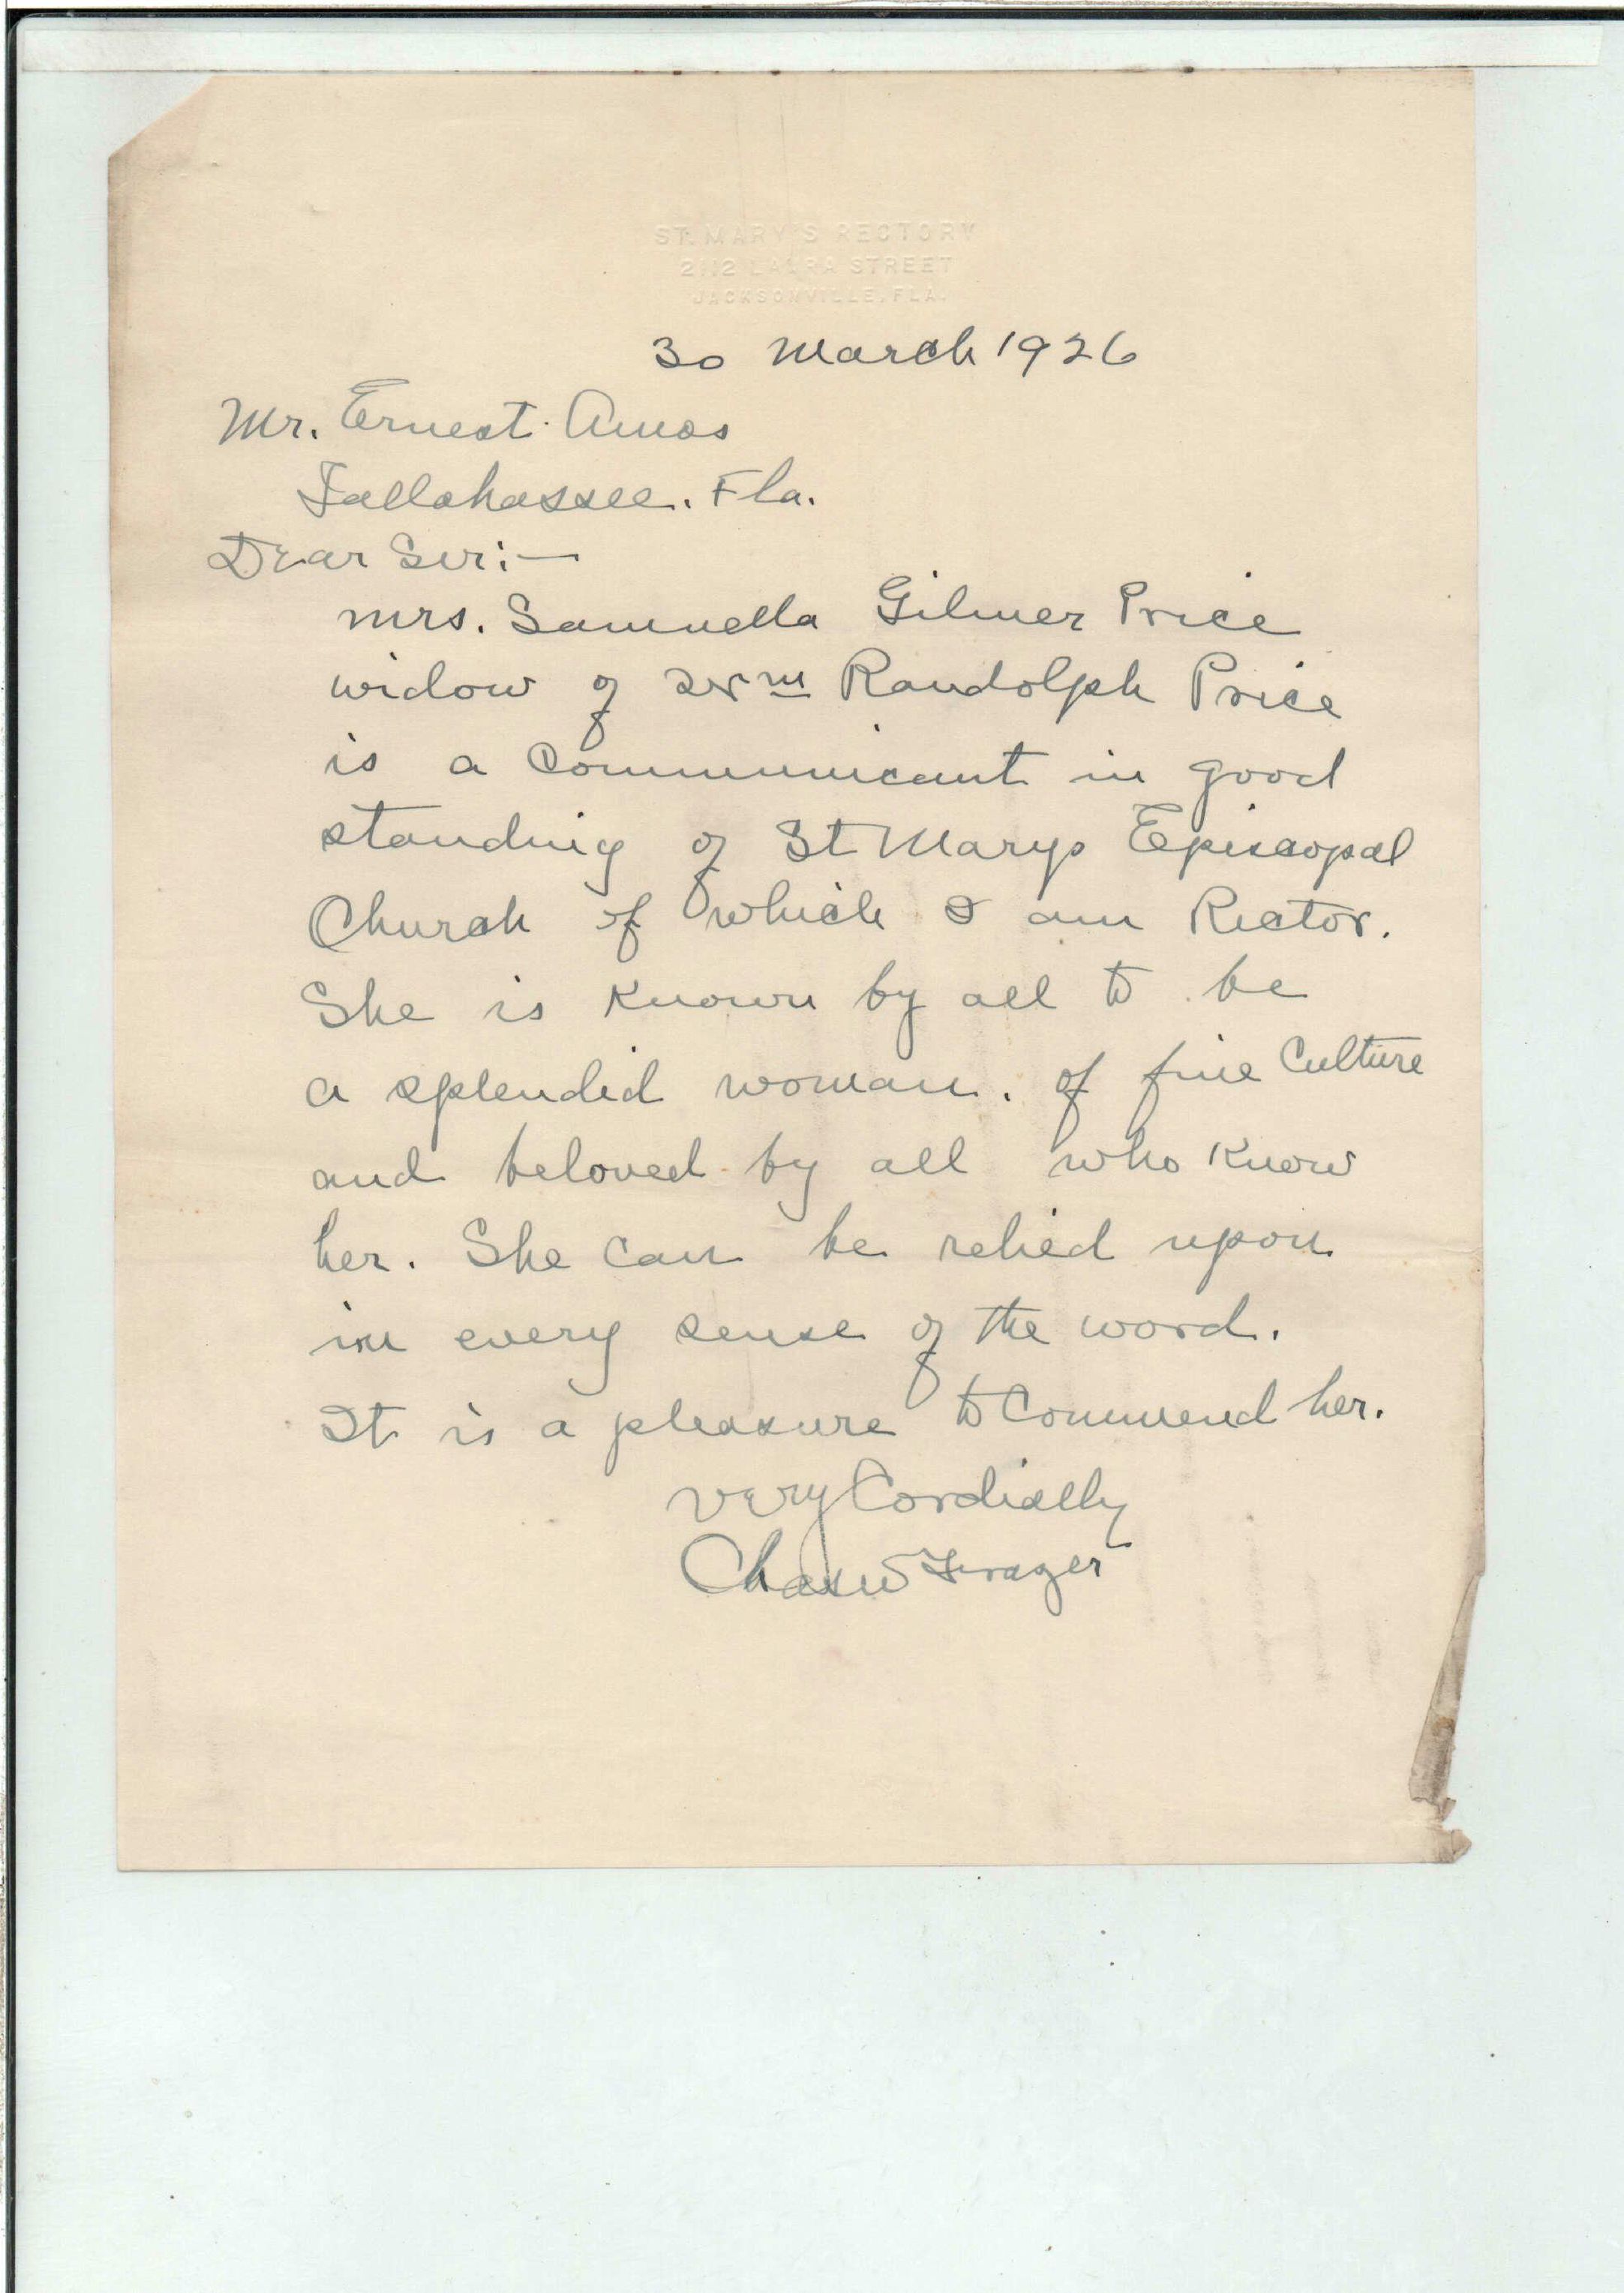 ST. MARY'S RECTORY
2112 LAURA STREET
JACKSONVILLE, FLA.
30 March 1926
Mr. Ernest Amos
Tallahassee. Fla.
Dear Sir:—
Mrs. Samuella Gilmer Price
widow of Wm Randolph Price
is a Communicant in good
standing of St Marys Episcopal
Church of which I am Rector.
She is Known by all to be
a splendid woman. of fine Culture
and beloved by all who Know
her. She Can be relied upon
in every sense of the word.
It is a pleasure to Commend her.
Very Cordially
Chas W Frazer